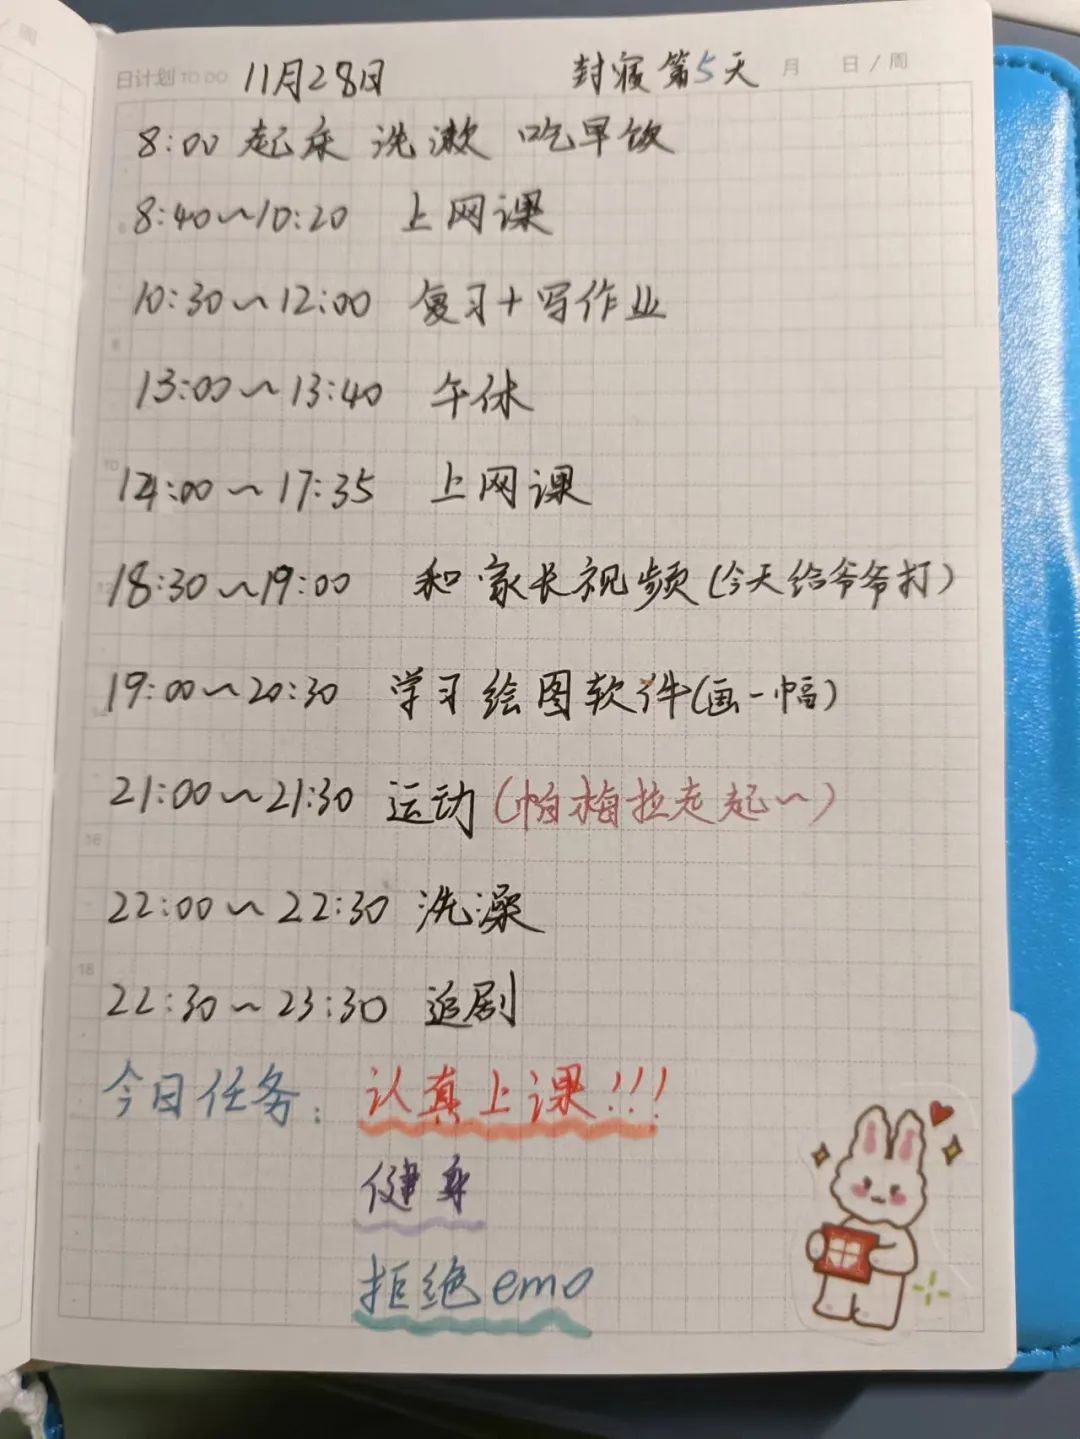 日计划 TO DO 11月28日 封寝第5天 月 日/周
8:00 起床 洗漱 吃早饭
8:40~10:20 上网课
10:30~12:00 复习+写作业
13:00~13:40 午休
14:00~17:35 上网课
18:30~19:00 和家长视频(今天给爷爷打)
19:00~20:30 学习绘图软件(画一幅)
21:00~21:30 运动(帕梅拉走起~)
22:00~22:30 洗澡
22:30~23:30 追剧
今日任务: 认真上课!!!
健身
拒绝emo